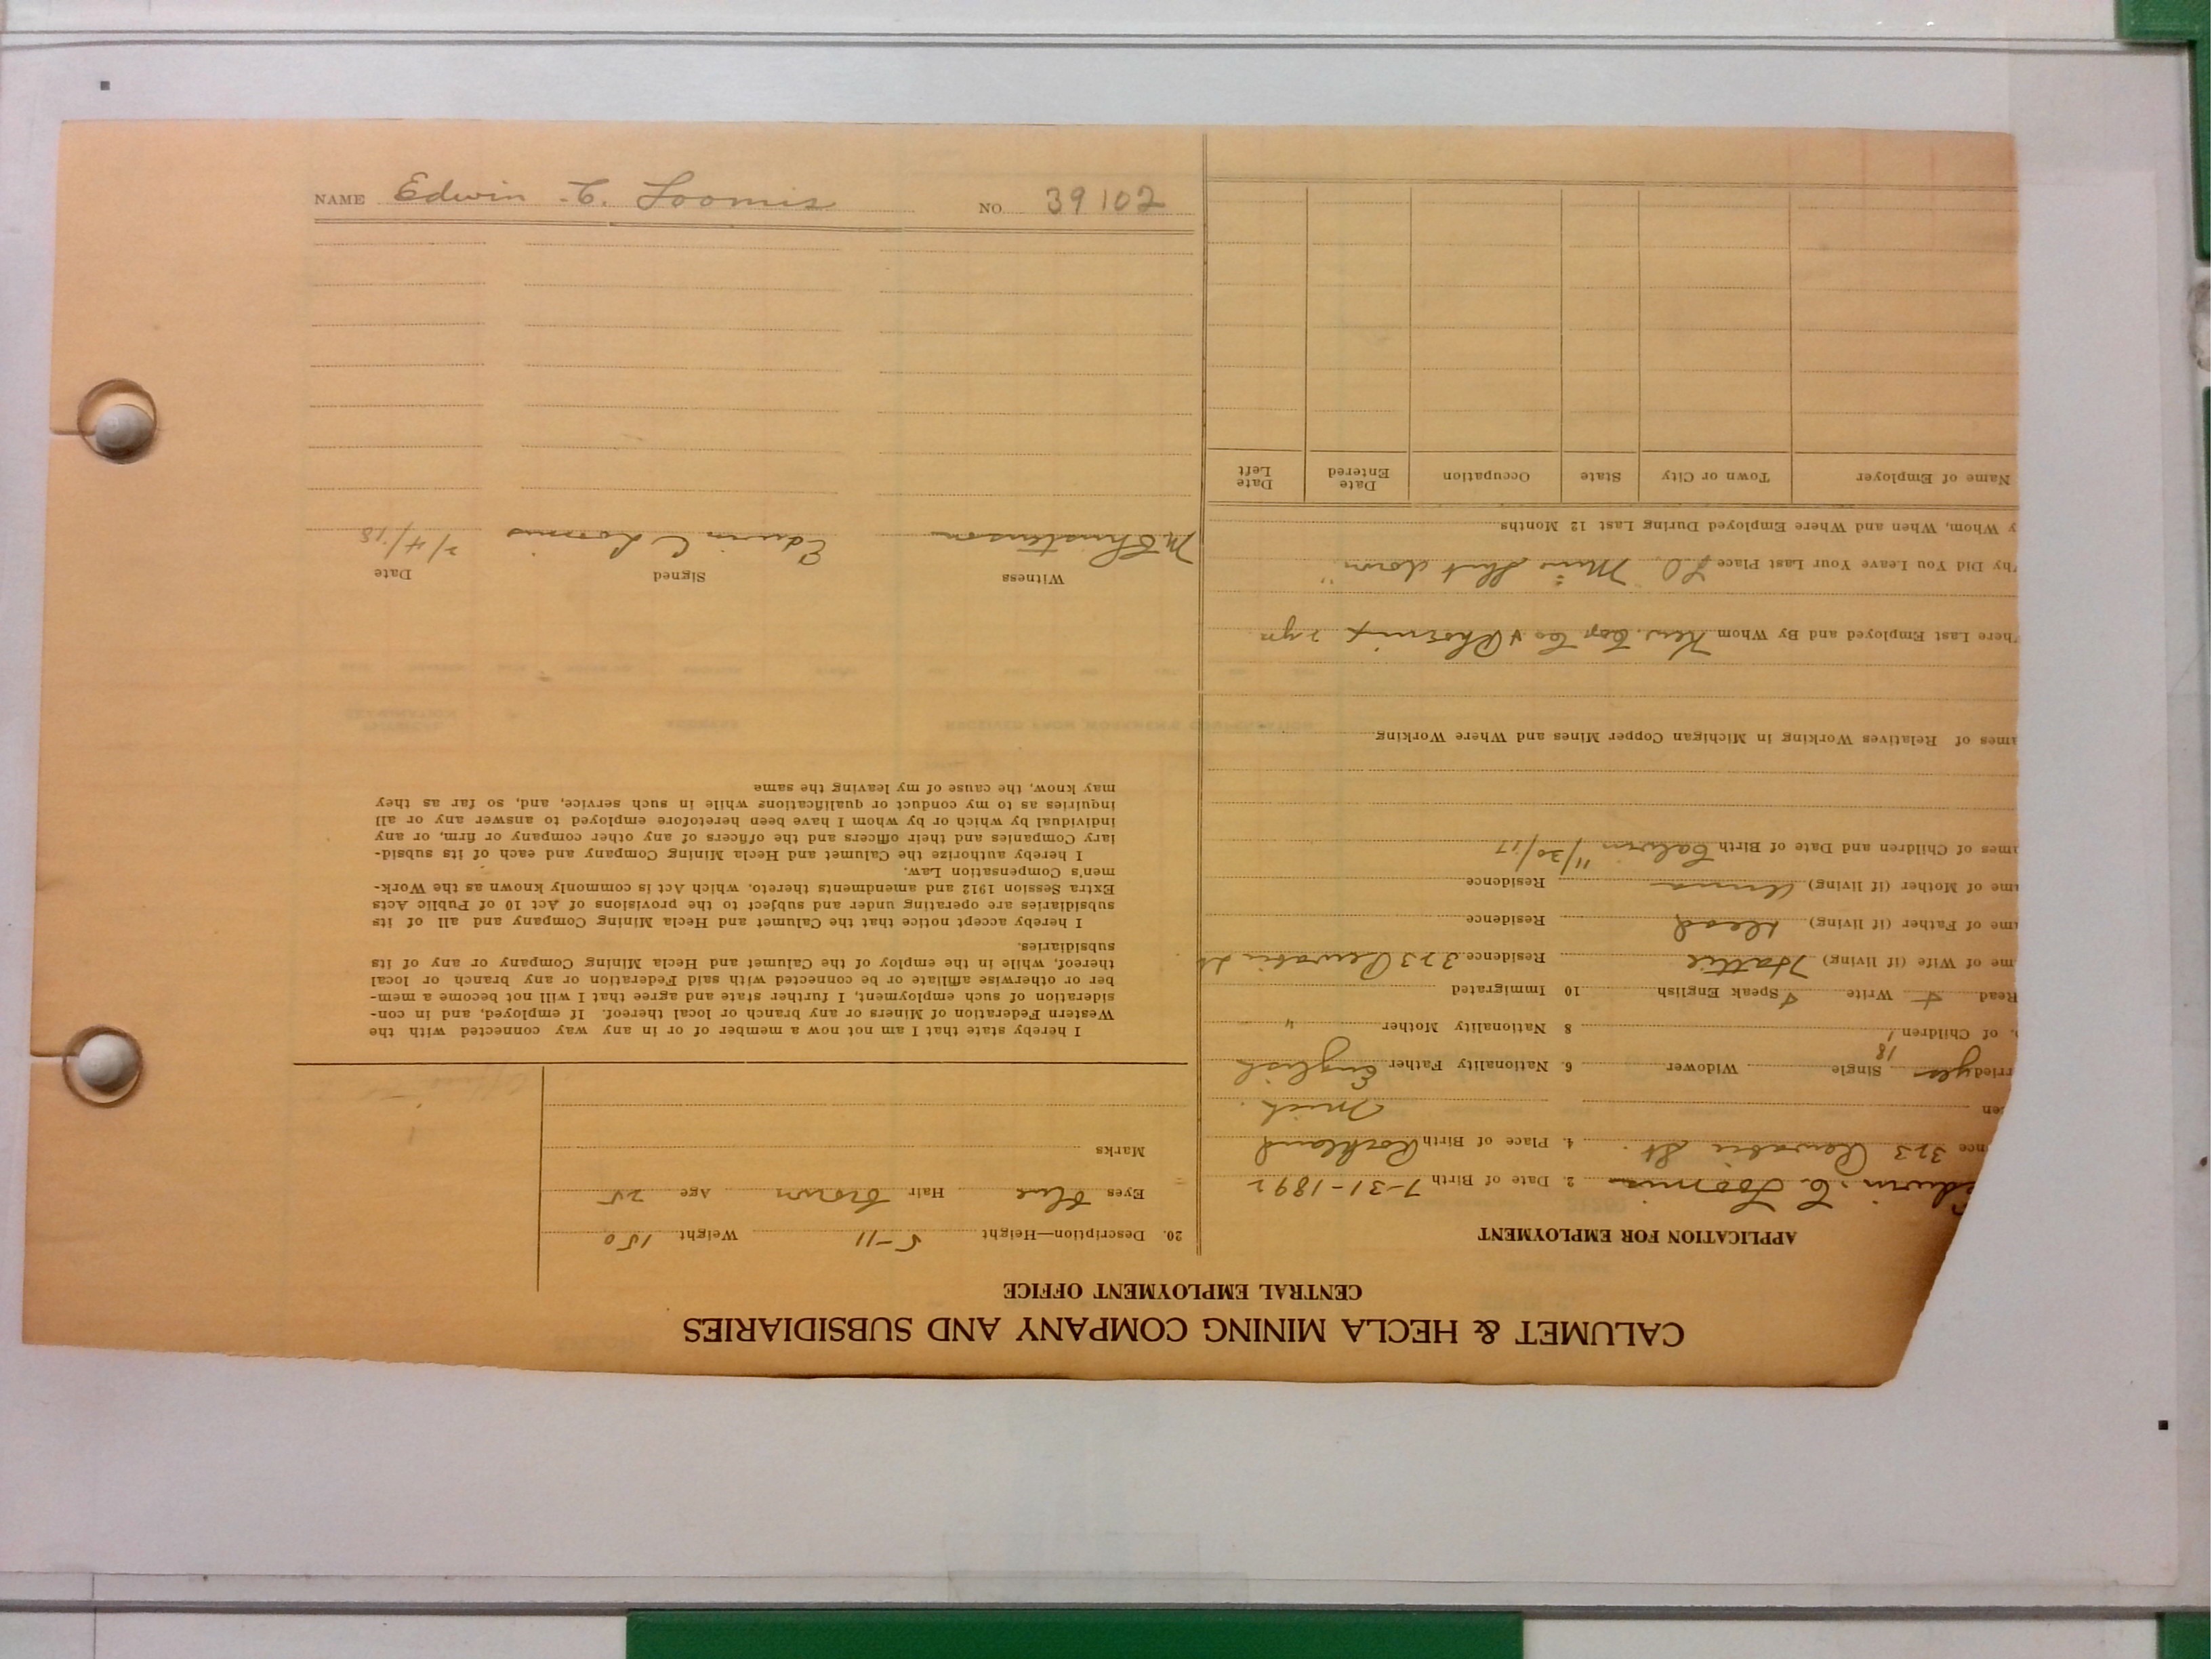 CALUMET & HECLA MINING COMPANY AND SUBSIDIARIES
CENTRAL EMPLOYMENT OFFICE
APPLICATION FOR EMPLOYMENT
Edwin C. Loomis 2. Date of Birth 7-31-1892
nce 323 St. 4. Place of Birth Rockland
en Mich.
rried yes Single Widower 6. Nationality Father English
18
o. of Children 1 8 Nationality Mother "
Read Write Speak English 10 Immigrated
me of Wife (if living) Hattie Residence 323 St
me of Father (if living) Dead Residence
me of Mother (if living) Anna Residence
ames of Children and Date of Birth Calvin 11/30/17
ames of Relatives Working in Michigan Copper Mines and Where Working
here Last Employed and By Whom Kew. Cop. Co. Phoenix 2 yr
hy Did You Leave Your Last Place "Mine Shut down"
y Whom, When and Where Employed During Last 12 Months
Name of Employer Town or City State Occupation Date Entered Date Left
20. Description—Height 5-11 Weight 150
Eyes blue Hair brown Age 25
Marks
I hereby state that I am not now a member of or in any way connected with the
Western Federation of Miners or any branch or local thereof. If employed, and in con-
sideration of such employment, I further state and agree that I will not become a mem-
ber or otherwise affiliate or be connected with said Federation or any branch or local
thereof, while in the employ of the Calumet and Hecla Mining Company or any of its
subsidiaries.
I hereby accept notice that the Calumet and Hecla Mining Company and all of its
subsidiaries are operating under and subject to the provisions of Act 10 of Public Acts
Extra Session 1912 and amendments thereto, which Act is commonly known as the Work-
men's Compensation Law.
I hereby authorize the Calumet and Hecla Mining Company and each of its subsid-
iary Companies and their officers and the officers of any other company or firm, or any
individual by which or by whom I have been heretofore employed to answer any or all
inquiries as to my conduct or qualifications while in such service, and, so far as they
may know, the cause of my leaving the same
Witness Signed Date
M. Christenson Edwin C Loomis 2/4/18
NAME Edwin C. Loomis NO. 39102